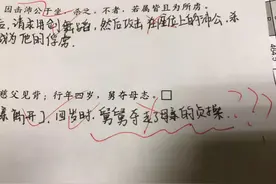 因击沛公于坐，杀之。不者，若属皆且为所虏。
后，请求用剑舞蹈，然后攻击在座位上的沛公，杀
成为他困俘虏。
慈父见背；行年四岁，舅夺母志，□
离开了，四岁时，舅舅夺走了母亲的贞操。
???